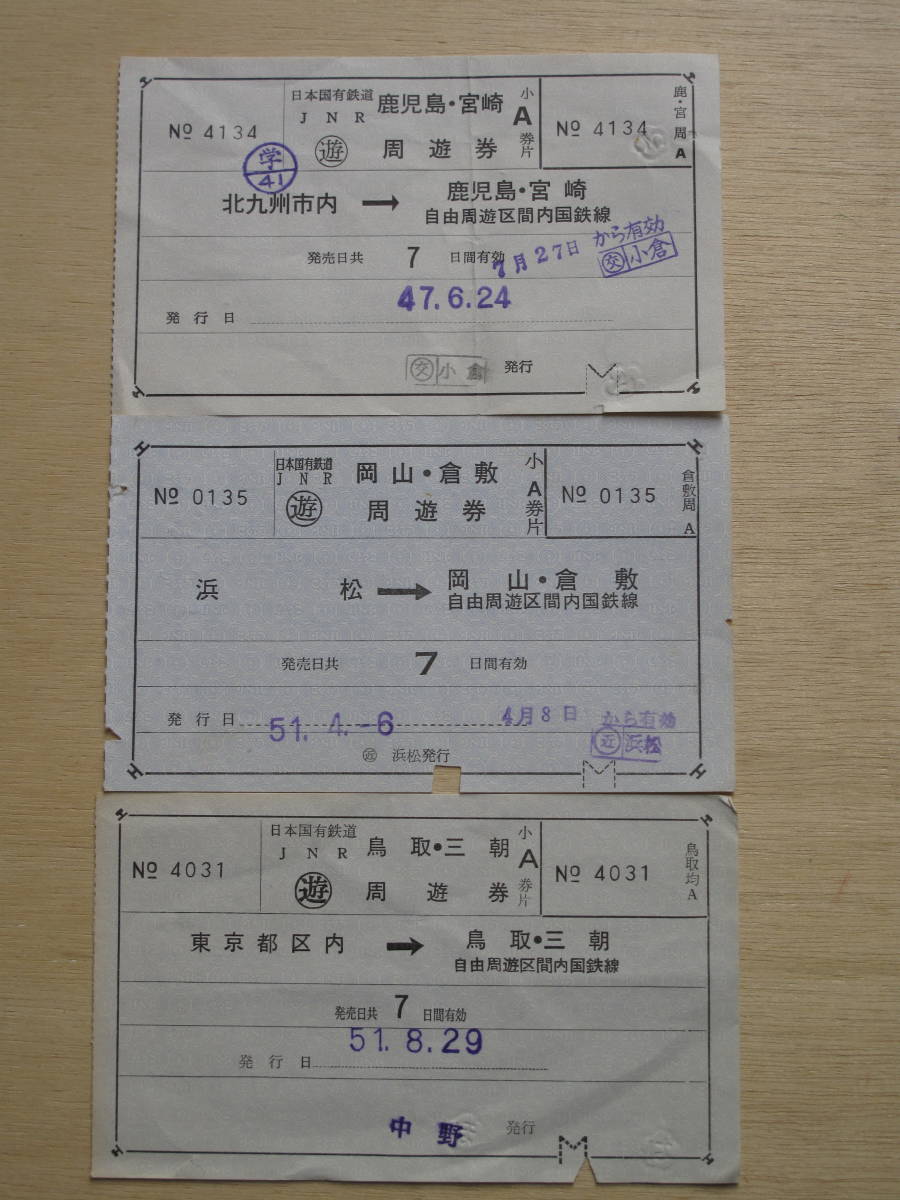 日本国有鉄道
JNR
鹿児島・宮崎
小
A
券片
鹿・宮周A
No 4134
遊
周遊券
No 4134
学
41
北九州市内
→
鹿児島・宮崎
自由周遊区間内国鉄線
発売日共 7 日間有効
7月27日 から有効
交 小倉
47.6.24
発行日
交 小倉 発行
日本国有鉄道
JNR
岡山・倉敷
小
A
券片
倉敷周A
No 0135
遊
周遊券
No 0135
浜松
→
岡山・倉敷
自由周遊区間内国鉄線
発売日共 7 日間有効
発行日 51.4.-6
4月8日 から有効
近 浜松
近 浜松発行
日本国有鉄道
JNR
鳥取・三朝
小
A
券片
鳥取均A
No 4031
遊
周遊券
No 4031
東京都区内
→
鳥取・三朝
自由周遊区間内国鉄線
発売日共 7 日間有効
51.8.29
発行日
中野 発行